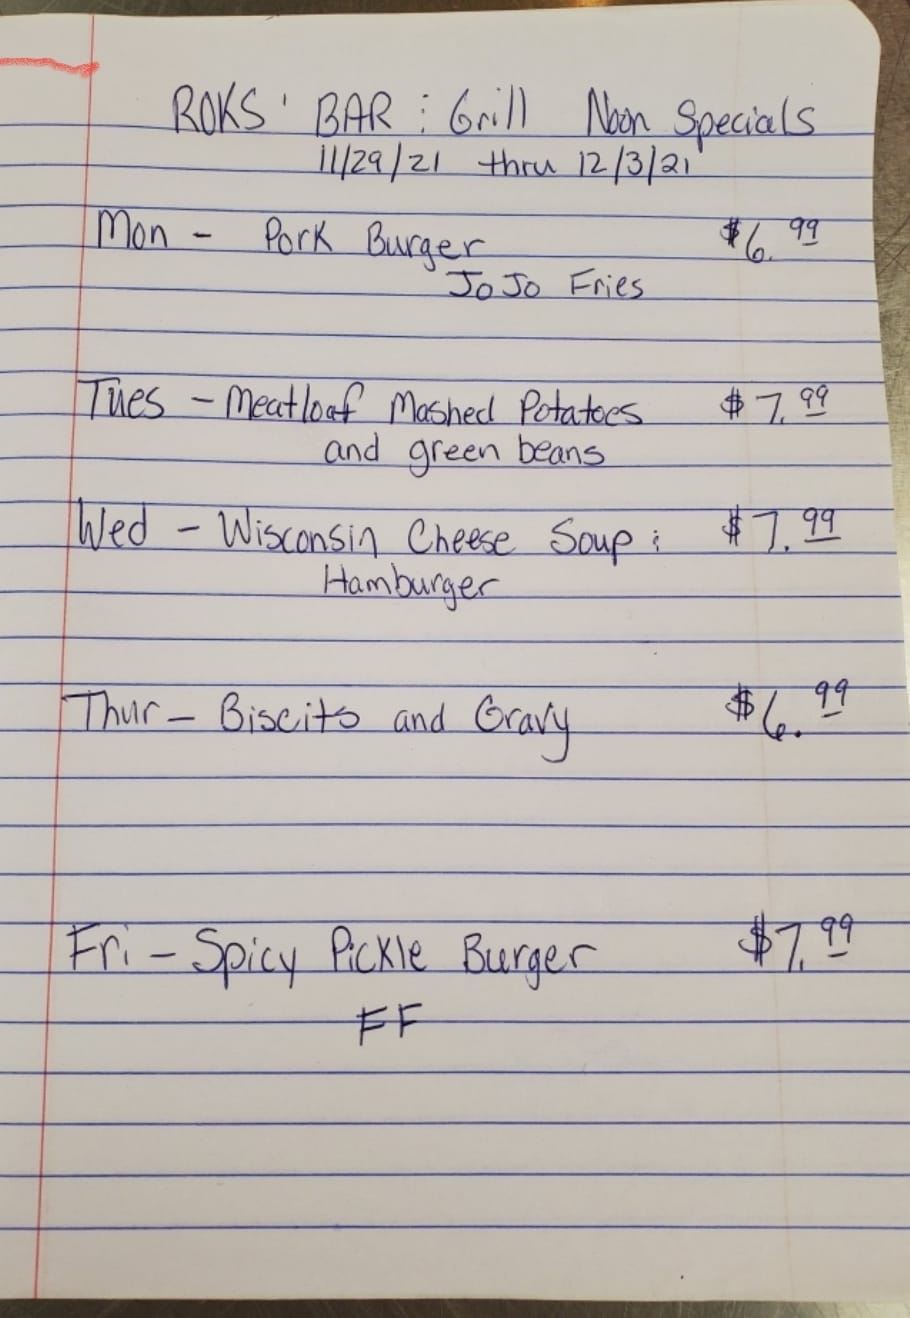 ROKS' BAR & Grill Noon Specials
11/29/21 thru 12/3/21
Mon - Pork Burger $6.99
JoJo Fries
Tues - Meatloaf Mashed Potatoes $7.99
and green beans
Wed - Wisconsin Cheese Soup & $7.99
Hamburger
Thur - Biscits and Gravy $6.99
Fri - Spicy Pickle Burger $7.99
FF